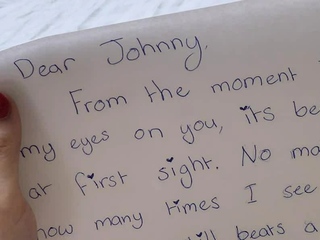 Dear Johnny,
From the moment
my eyes on you, its
at first sight. No
how many times I see
beats a